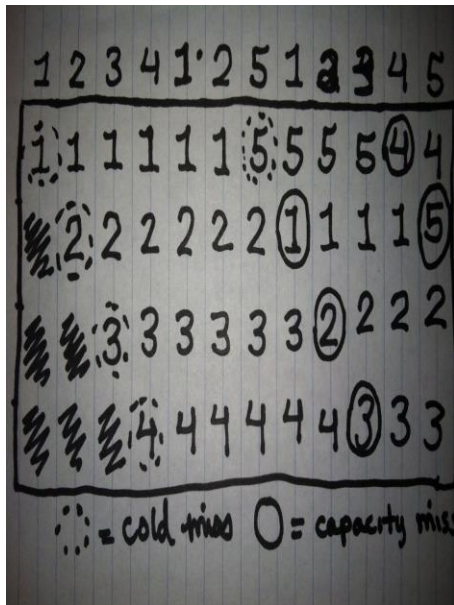 1 2 3 4 1 2 5 1 2 3 4 5
1 1 1 1 1 1 5 5 5 5 4 4
2 2 2 2 2 2 1 1 1 1 5
3 3 3 3 3 3 2 2 2 2
4 4 4 4 4 4 3 3 3
= cold miss = capacity mis